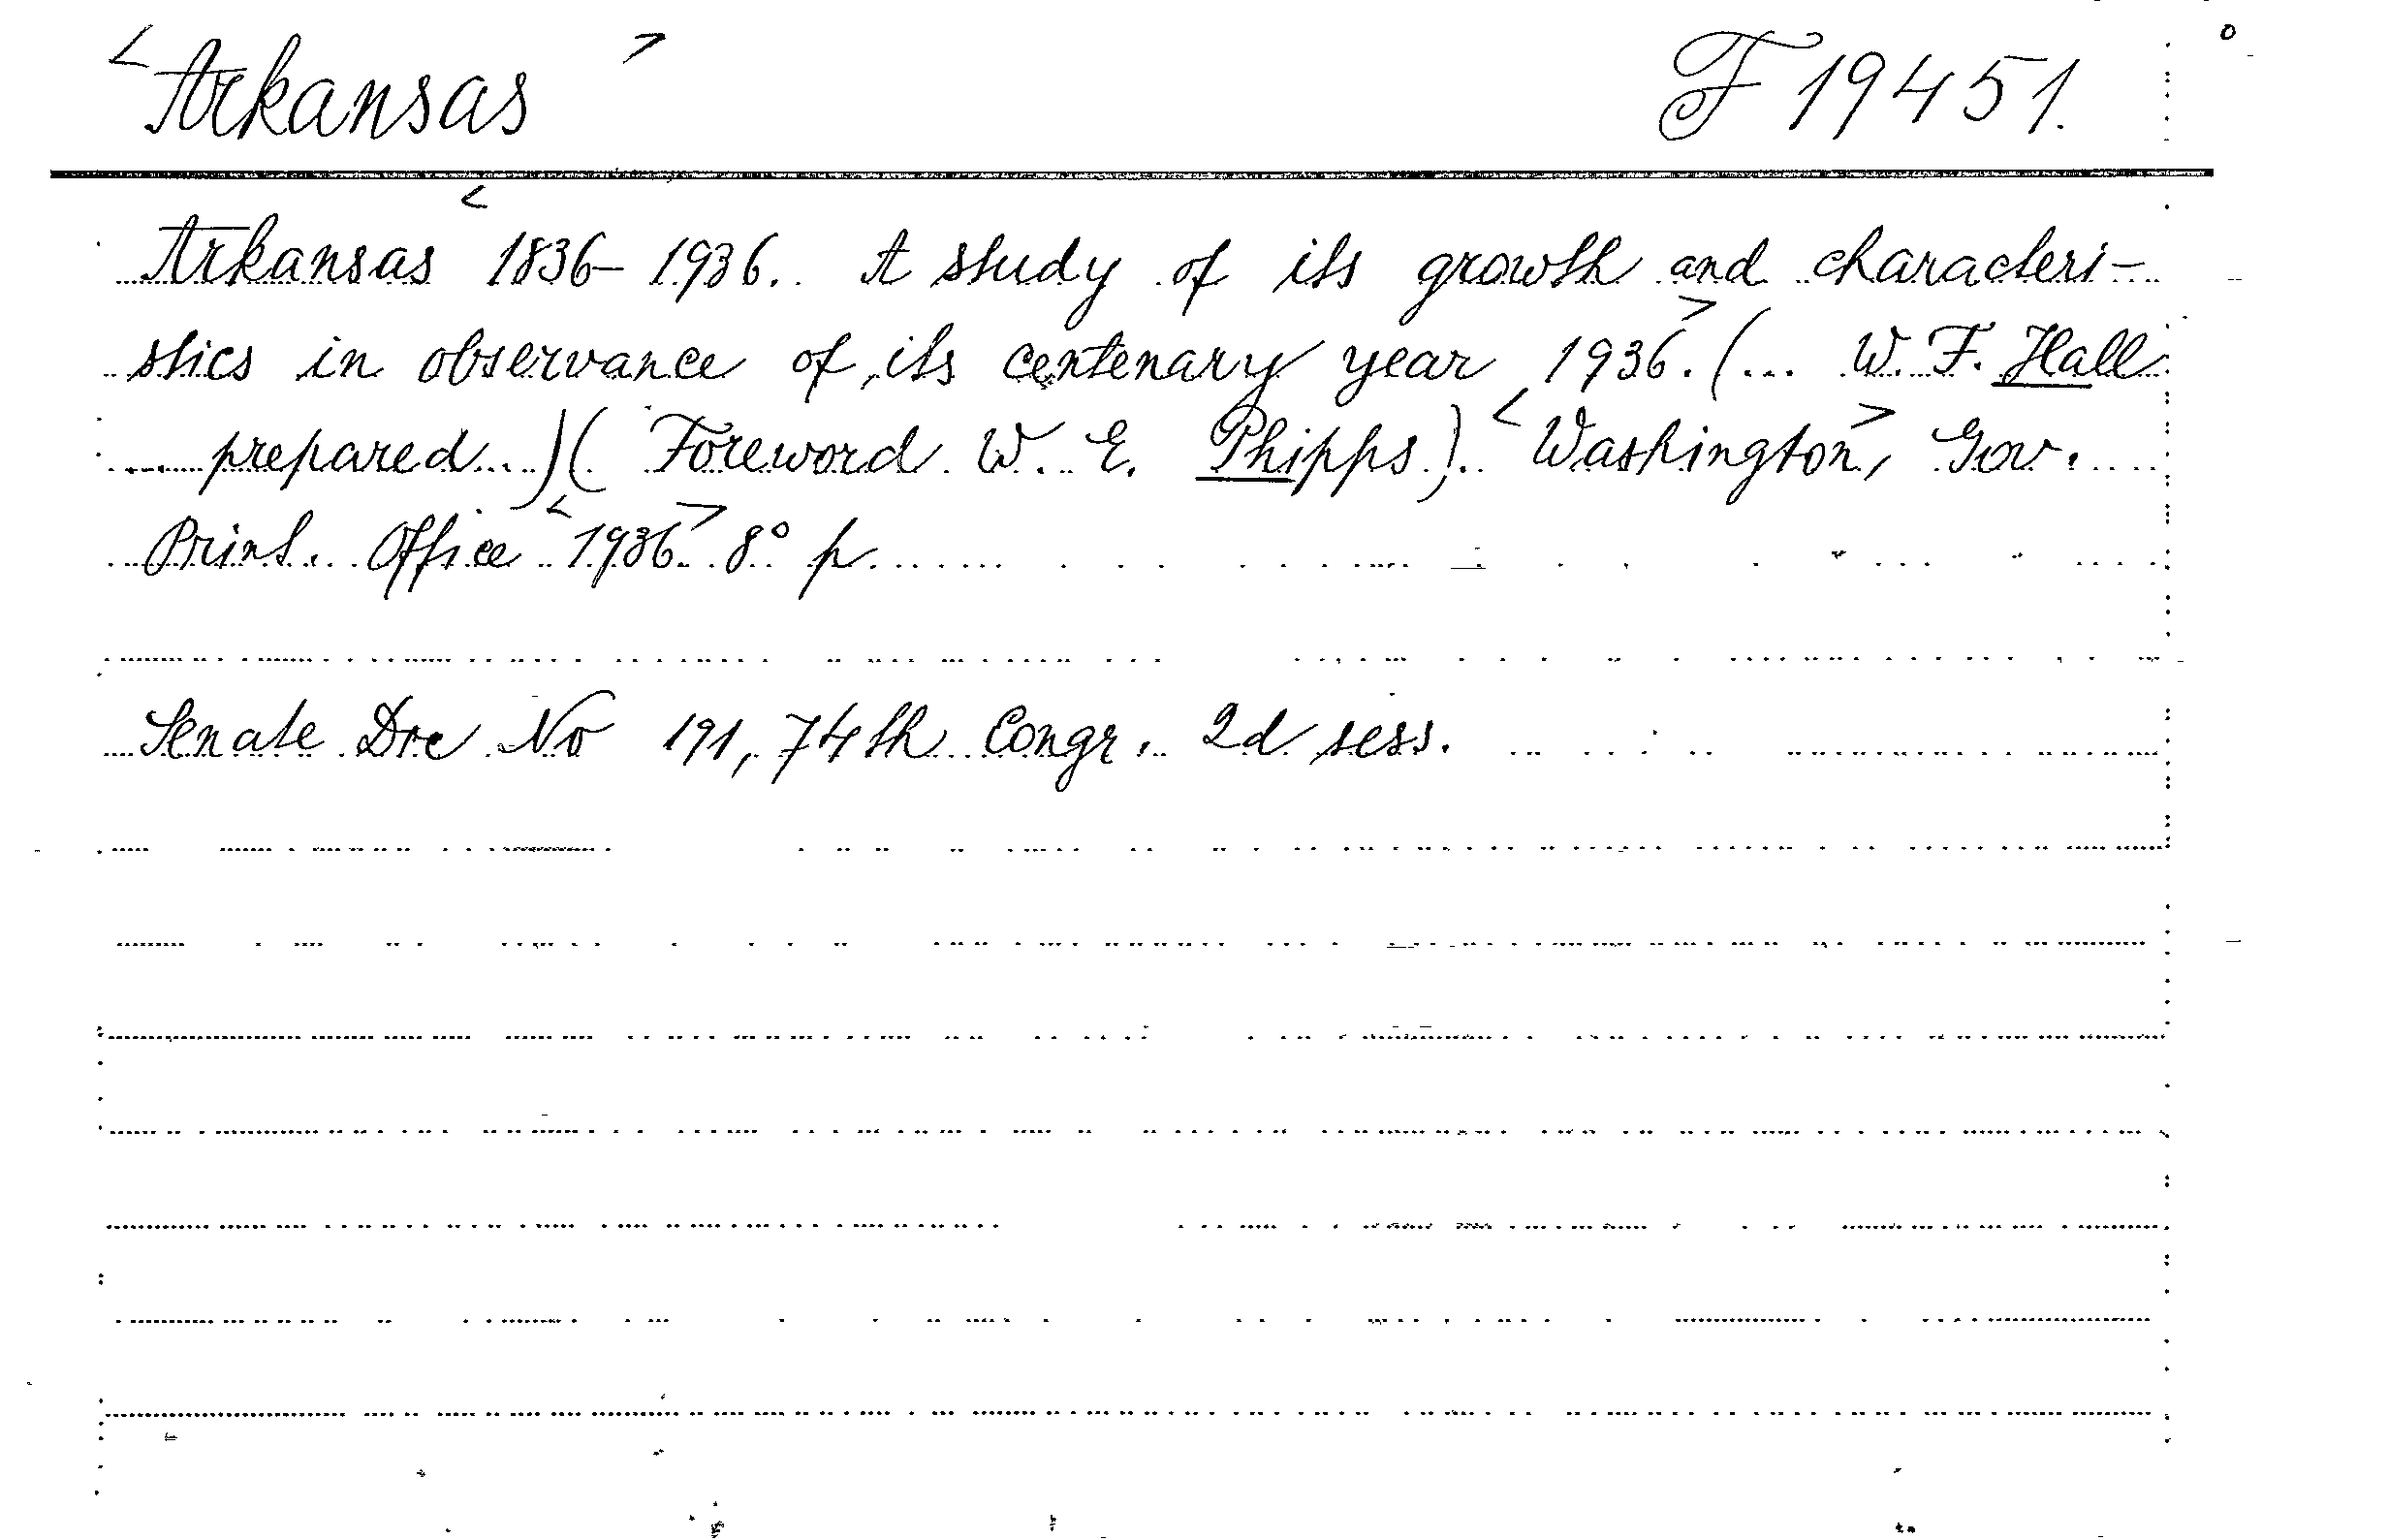 < Arkansas > F 19451.
< Arkansas 1836-1936. A study of its growth and characteri-
stics in observance of its centenary year 1936.> (... W. F. Hall
... prepared...) (Foreword W. E. Phipps). <Washington>, Gov.
Print. Office <1936> 8° p.
Senate Doc No 191, 74th Congr. 2d sess.